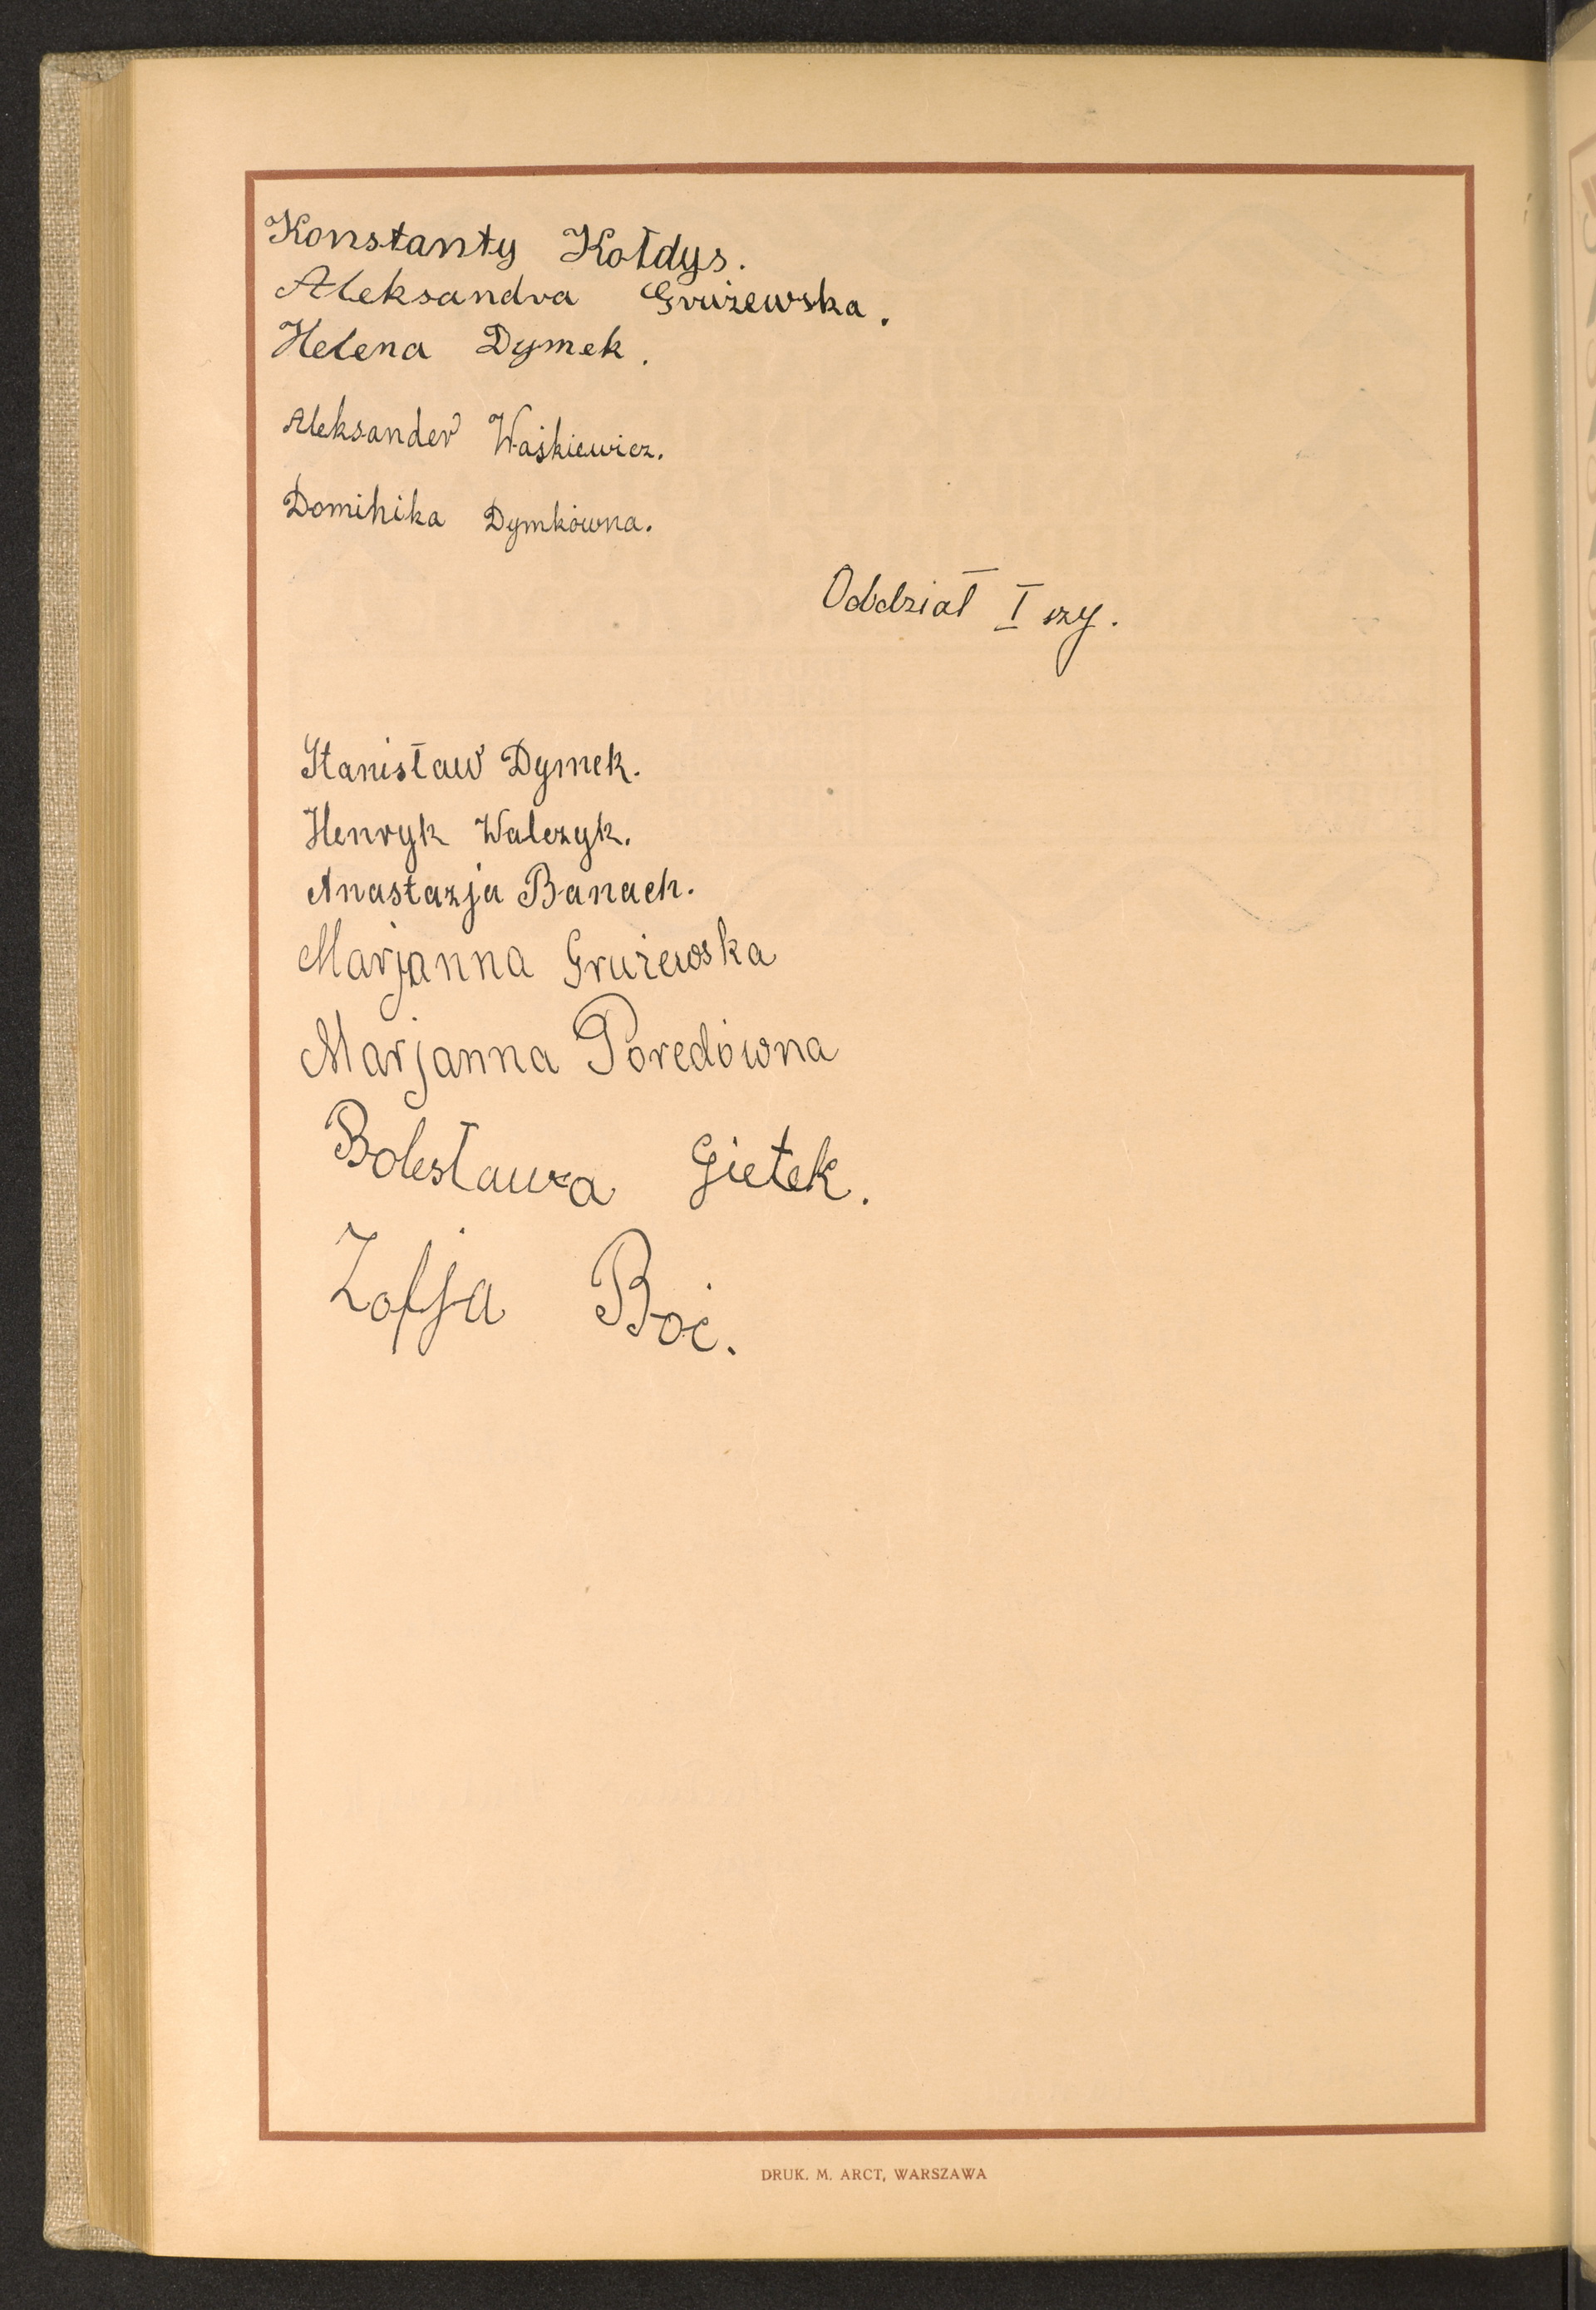 Konstanty Kołdys.
Aleksandra Grużewska.
Helena Dymek.
Aleksander Waśkiewicz.
Dominika Dymkówna.
Oddział I szy.
Stanisław Dymek.
Henryk Walczyk.
Anastazja Banach.
Marjanna Grużewska
Marjanna Poredówna
Bolesława Gietek.
Zofja Boć.
DRUK. M. ARCT, WARSZAWA